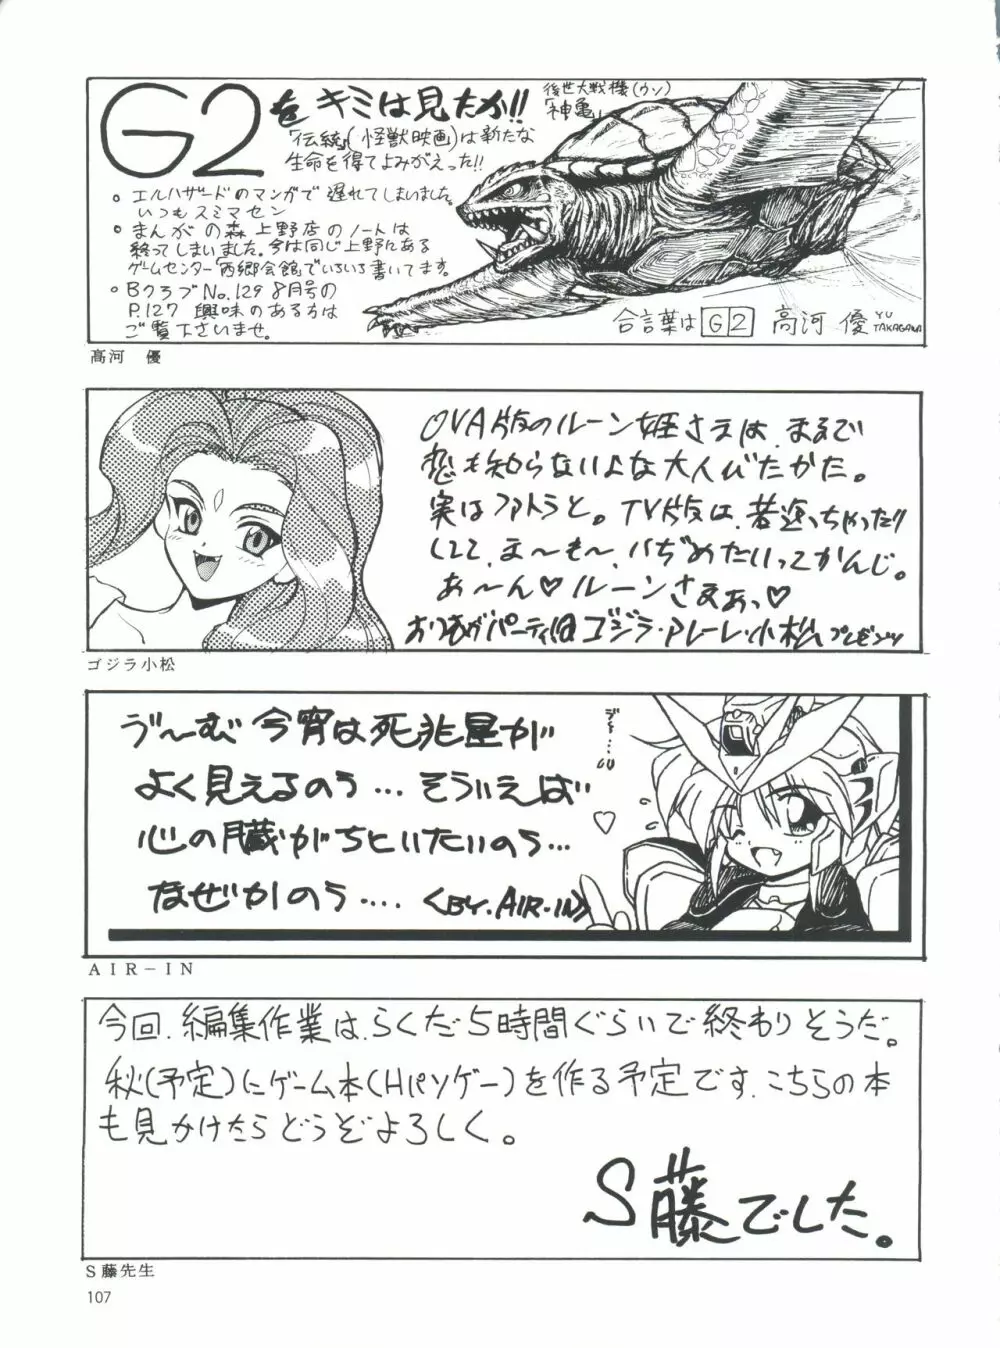 G2を キミは見たか!!
「伝統」(怪獣映画)は新たな
生命を得てよみがえった!!
後世大戦機(ウソ)
「神亀」
○エルハザードのマンガで 遅れてしまいました。
いつもスミマセン
○まんがの森 上野店のノートは
終ってしまいました。今は同じ上野にある
ゲームセンター「西郷会館」でいろいろ書いてます。
○BクラブNo.129 8月号の
P.127 興味のある方は
ご覧下さいませ。
合言葉は G2 高河 優 YU TAKAGAWA
高河 優
OVA版のルーン姫さまは、まるで
恋も知らないよな大人びたかた。
実はファトラと。TV版は、若返っちゃったり
してて、ま〜も〜、いぢめたいってかんじ。
あ〜ん♡ルーンさまぁっ♡
ゴジラ・アレーレ・小松 プレゼンツ
ゴジラ小松
ゔ〜む 今宵は死兆星が
よく見えるのう…そういえば
心の臓がちといたいのう…
なぜかのう…. <BY.AIR-IN>
AIR-IN
今回、編集作業は、らくだ5時間ぐらいで終わりそうだ。
秋(予定)にゲーム本(Hパソゲー)を作る予定です、こちらの本
も見かけたらどうぞよろしく。
S藤でした。
S藤先生
107